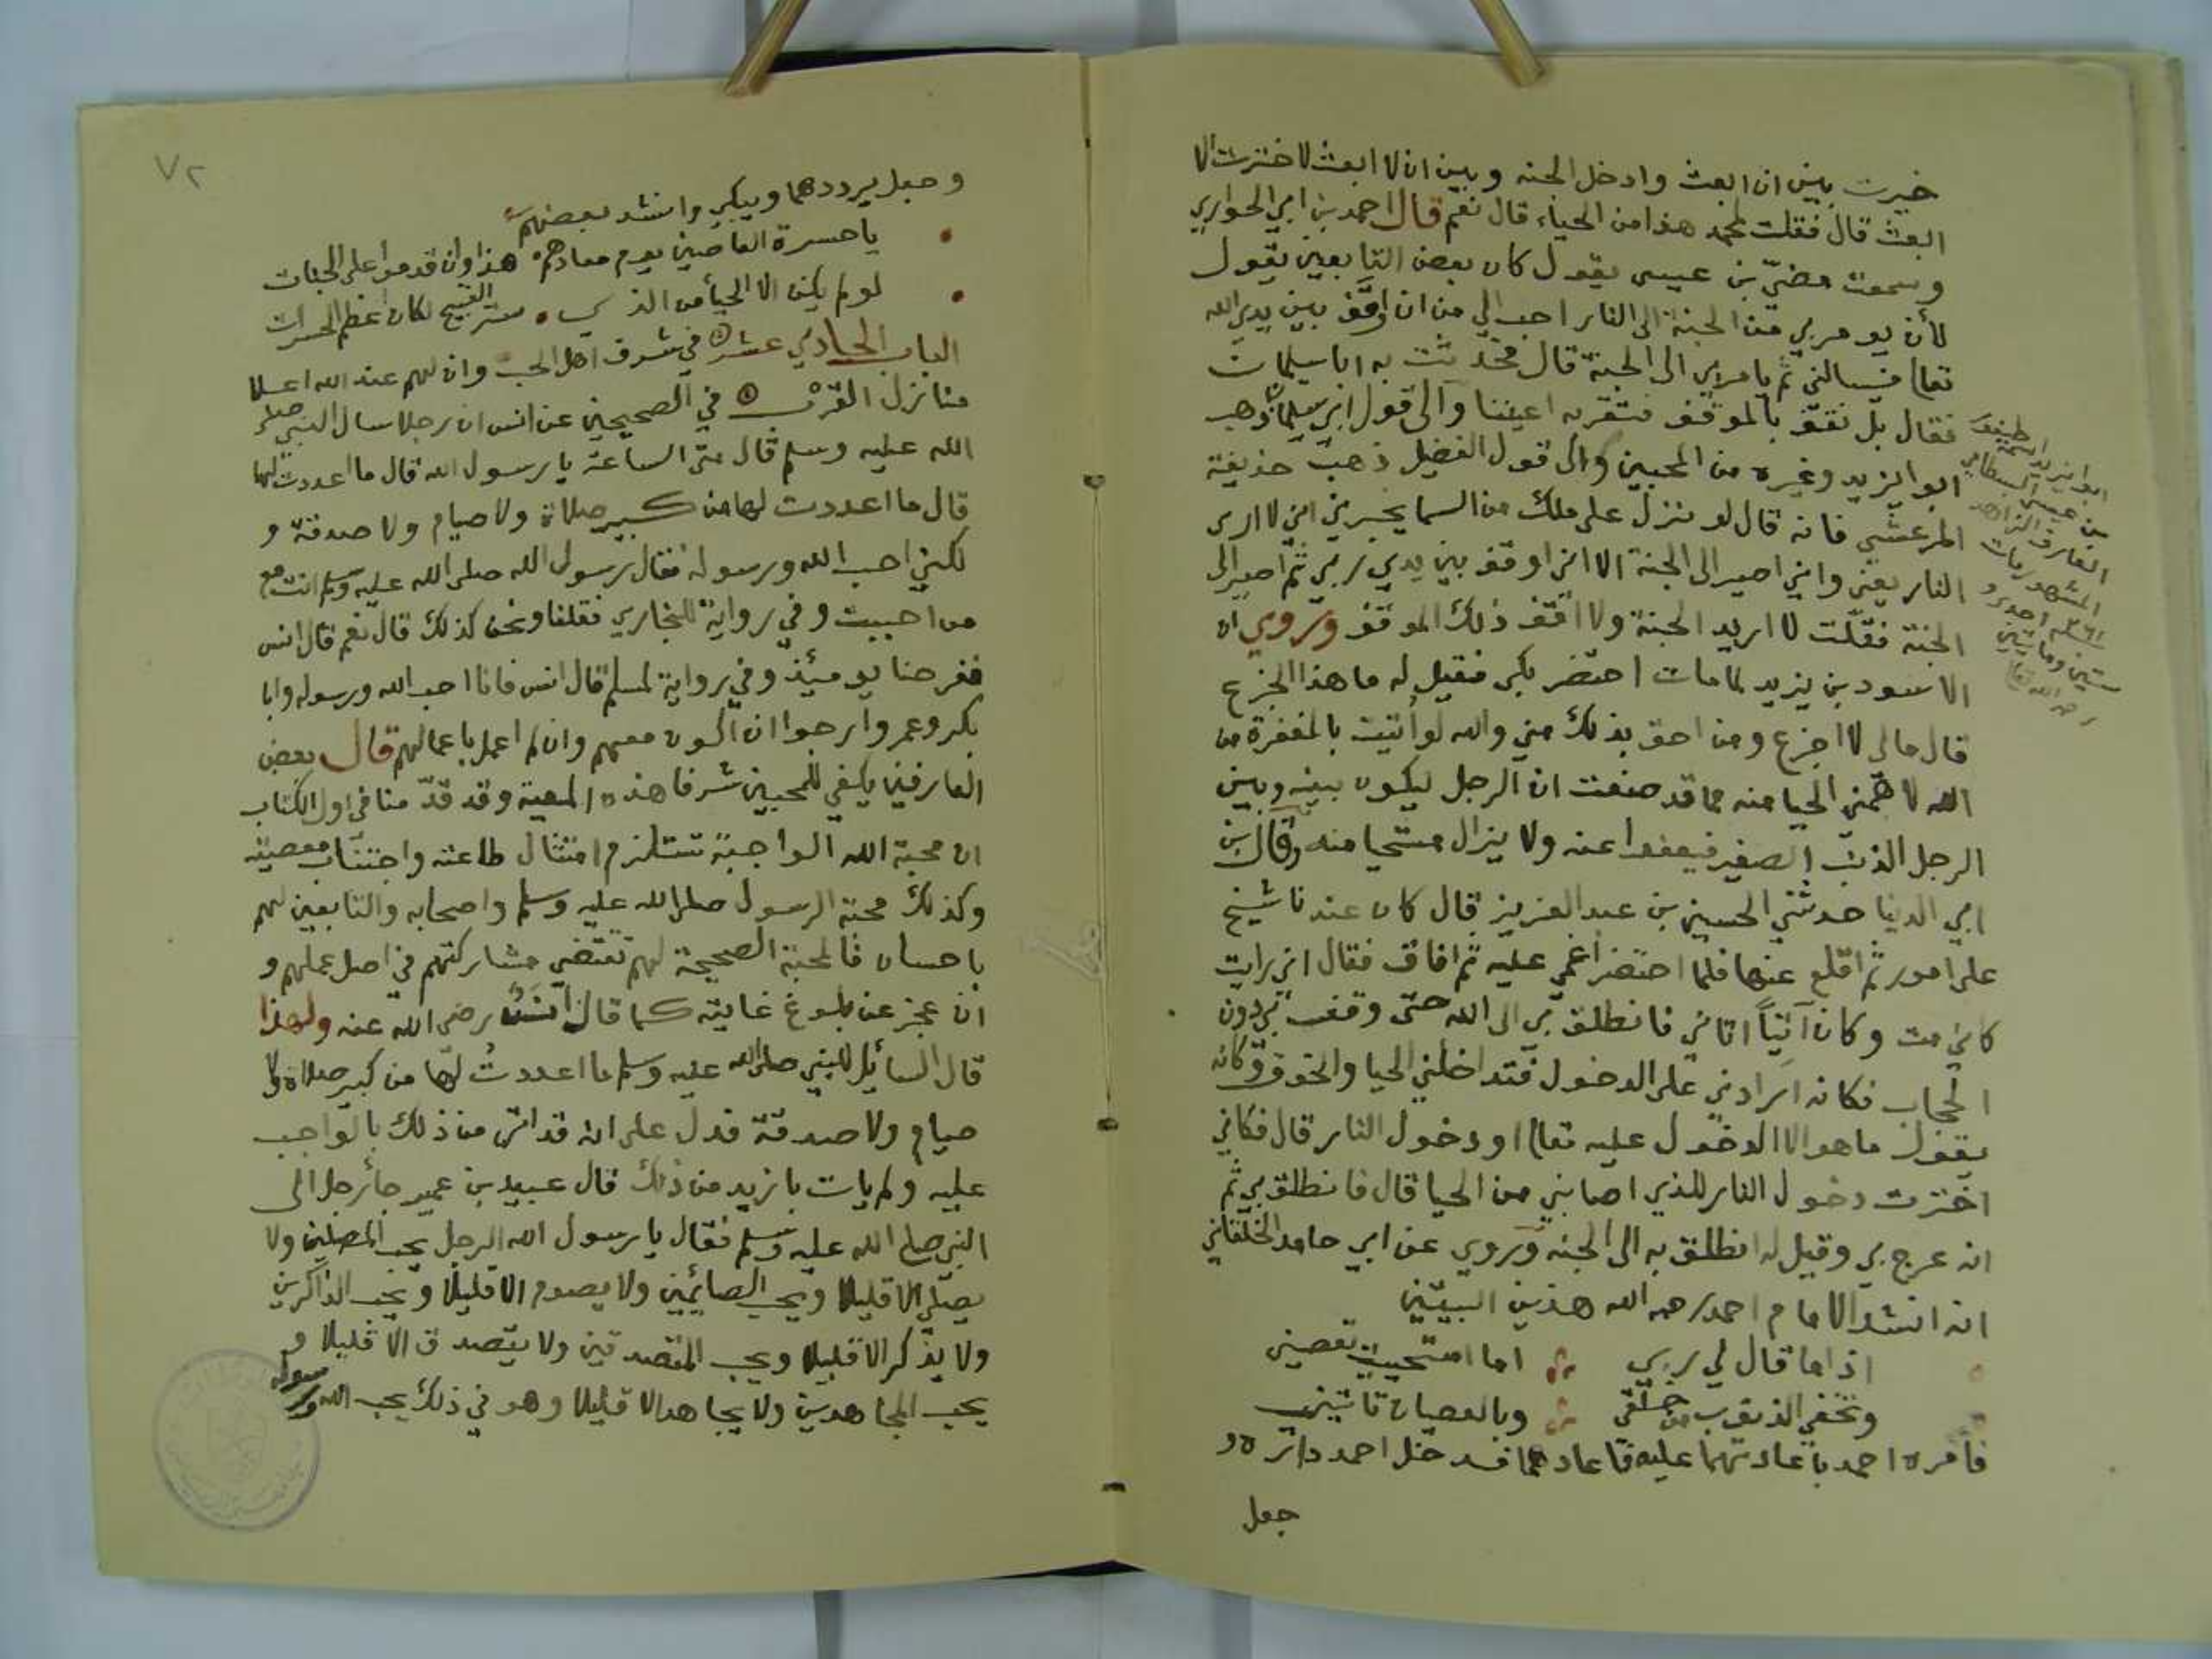 خيرت بين ان ابعث وادخل الجنه وبين ان لا ابعث لاخترت الا
ابعث قال فقلت لمحمد هذا من الحياء قال نعم قال احمد بن ابي الحواري
وسمعت مضي بن عيسى يقول كان بعض التابعين يقول
لأن يومر بي من الجنة الى النار احب الي من ان اوقف بين يدي الله
تعالى فيسالني ثم يامر بي الى الجنة قال فحدثت به ابا سليمان
فقال بل نقف بالموقف فتقر به اعيننا والى قول ابي سليمان ذهب
ابو اليزيد وغيره من المحبين والى قول الفضيل ذهب حذيفة
المرعشي فانه قال لو نزل علي ملك من السما يخبرني اني لا ارى
النار يعني واني اصير الى الجنة الا اني اوقف بين يدي ربي ثم اصير الى
الجنة فقلت لا اريد الجنة ولا اقف ذلك الموقف وروي ان
الاسود بن يزيد لما مات احتضر بكى فقيل له ما هذا الجزع
قال مالي لا اجزع ومن احق بذلك مني والله لو اتيت بالمغفرة من
الله لاهمني الحيا منه مما قد صنعت ان الرجل ليكون بينه وبين
الرجل الذنب الصغير فيعفوا عنه ولا يزال مستحيا منه وقال بن
ابي الدنيا حدثني الحسين بن عبد العزيز قال كان عندنا شيخ
على امور ثم اقلع عنها فلما احتضر اغمي عليه ثم افاق فقال اني رايت
كاني مت وكان آتياً اتاني فانطلق بي الى الله حتى وقف بي دون
الحجاب فكانه ارادني على الدخول فتداخلني الحيا والخوف وكانه
يقول ما هو الا الدخول عليه تعالى او دخول النار قال فكاني
اخترت دخول النار للذي اصابني من الحيا قال فانطلق بي ثم
انه عرج بي وقيل له انطلق به الى الجنه وروي عن ابي حامد الخلقاني
انه انشد الامام احمد رحمه الله هذين البيتين
اذا ما قال لي ربي اما استحييت تعصيني
وتخفي الذنوب من خلقي وبالعصيان تاتيني
فامره احمد باعادتهما عليه فاعادهما فدخل احمد داره و
جعل
ابو اليزيد طيفور
بن عيسى البسطامي
العارف الزاهد
المشهور مات
سنة احدى و
ستين ومايتين
رحمه الله تعالى
٧٢
وجعل يرددهما ويبكي وانشد بعضهم
يا حسرة العاصين يوم معادهم هذا وان قدموا على الجنات
لو لم يكن الا الحيأ من الذي ستر القبيح لكان اعظم الحسرات
الباب الحادي عشر في شرف اهل الحب وان لهم عند الله اعلا
منازل القرب في الصحيحين عن انس ان رجلا سال النبي صلى
الله عليه وسلم قال متى الساعة يا رسول الله قال ما اعددت لها
قال ما اعددت لها من كبير صلاة ولا صيام ولا صدقة و
لكني احب الله ورسوله فقال رسول الله صلى الله عليه وسلم انت مع
من احببت وفي رواية للبخاري فقلنا ونحن كذلك قال نعم قال انس
ففرحنا يومئذ وفي رواية لمسلم قال انس فانا احب الله ورسوله وابا
بكر وعمر وارجوا ان اكون معهم وان لم اعمل باعمالهم قال بعض
العارفين يكفي للمحبين شرفا هذه المعية وقد قدمنا في اول الكتاب
ان محبة الله الواجبة تستلزم امتثال طاعته واجتناب معصيته
وكذلك محبة الرسول صلى الله عليه وسلم واصحابه والتابعين لهم
باحسان فالمحبة الصحيحة لهم تقتضي مشاركتهم في اصل عملهم و
ان عجز عن بلوغ غايته كما قال انس رضي الله عنه ولهذا
قال السائل للنبي صلى الله عليه وسلم ما اعددت لها من كبير صلاة ولا
صيام ولا صدقة فدل على انه قد اتى من ذلك بالواجب
عليه ولم يات بازيد من ذلك قال عبيد بن عمير جأ رجل الى
النبي صلى الله عليه وسلم فقال يا رسول الله الرجل يحب المصلين ولا
يصلي الا قليلا ويحب الصائمين ولا يصوم الا قليلا ويحب الذاكرين
ولا يذكر الا قليلا ويحب المتصدقين ولا يتصدق الا قليلا و
يحب المجاهدين ولا يجاهد الا قليلا وهو في ذلك يحب الله ورسوله